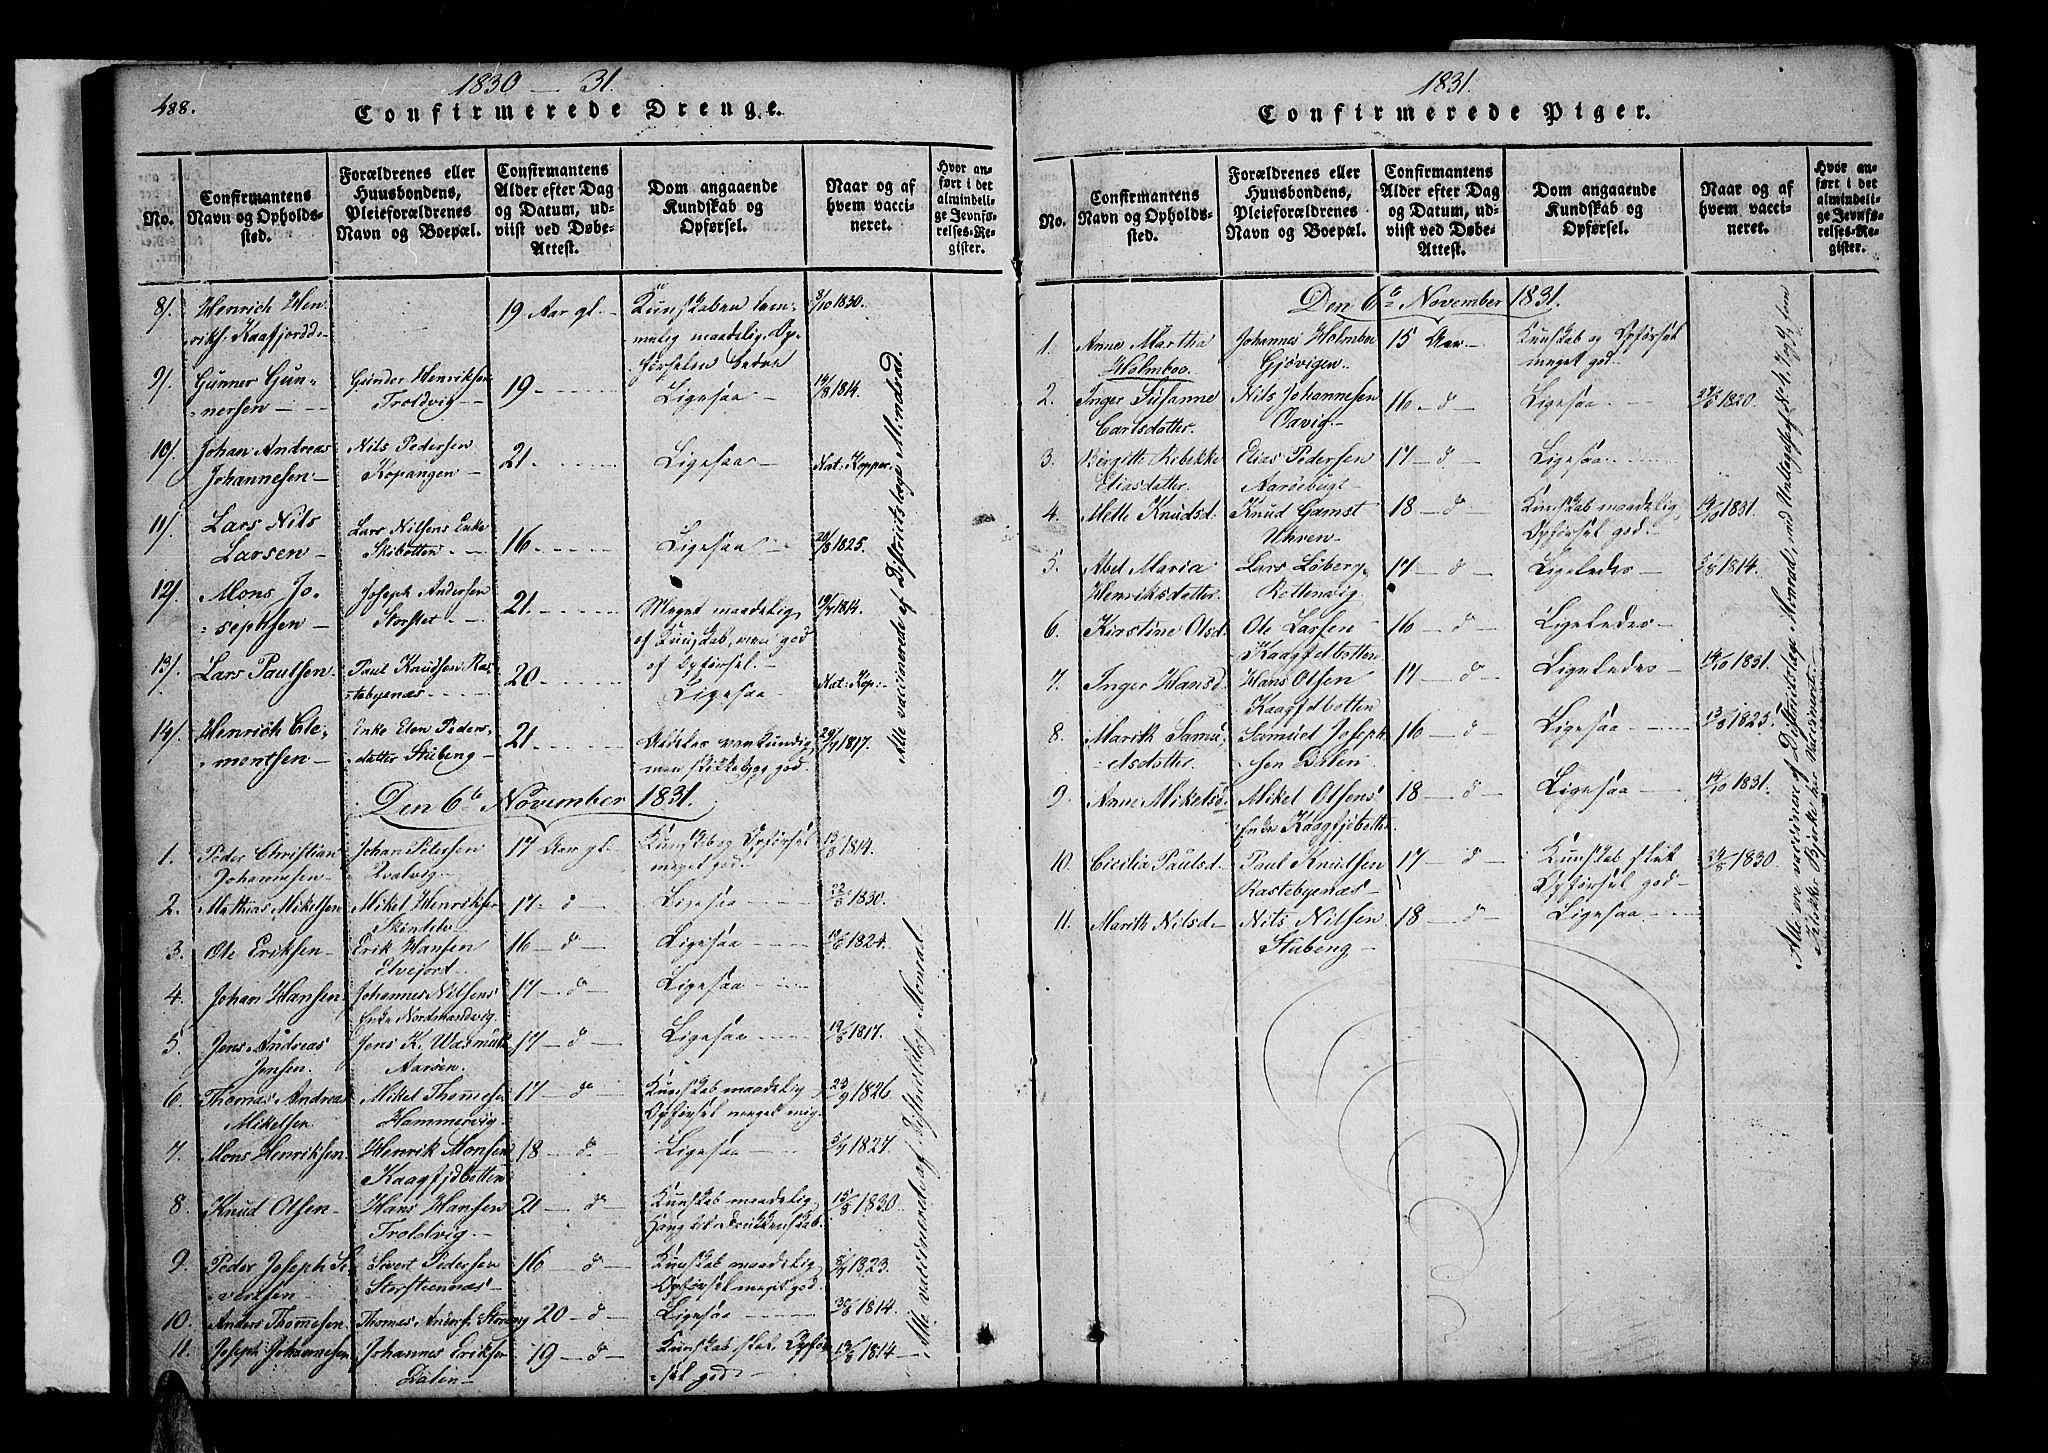 488.
1830 — 31.
Confirmerede Drenge.
No.
Confirmantens Navn og Opholds-sted.
Forældrenes eller Huusbondens, Pleieforældrenes Navn og Boepæl.
Confirmantens Alder efter Dag og Datum, ud-viist ved Døbe-Attest.
Dom angaaende Kundskab og Opførsel.
Naar og af hvem vacci-neret.
Hvor an-ført i det almindeli-ge Jevnfø-relses-Re-gister.
8). Henrich Hen-riks. Kaafjordd. 19 Aar gl. Kunskaben tem-melig maadelig, Op-førselen bedre 8/10 1830.
9). Gunner Gun-nersen — Gunder Henriksen Troldvig — 19 — Ligesaa — 14/8 1814.
10). Johan Andreas Johannesen — Nils Pedersen Kopangen — 21. Ligesaa — Nat: Kopper.
11). Lars Nils Larsen — Lars Nilsens Enke Skibotten 16 Ligesaa 28/8 1825.
12). Mons Jo-sephsen — Joseph Andersen Storslet — 21. Meget maadelig af Kunskab, men god af Opførsel. — 19/7 1814.
13). Lars Paulsen — Paul Knudsen Ras-tebyenæs 20 Ligesaa — Nat: Kop: —
14). Henrich Cle-mentsen — Enke Elen Peders-datter Stubeng — 21. men skikkelig og god. 29/7 1817.
Alle vaccinerede af Districtslæge Mondrad.
Den 6te November 1831.
1. Peder Christian Johannesen — Johan Petersen Qvalvig — 17 Aar gl. Kunskab og Opførsel meget god — 13/8 1814.
2. Mathias Mikelsen Mikel Henriksen 17. — d — Ligesaa — 22/8 1830.
3. Ole Eriksen — Erik Hansen Elvejort. 16 — d — Ligesaa — 1824.
4. Johan Hansen, Johannes Nilsens Enke Nordmandvig. 17 — d — Ligesaa —
5. Jens Andreas Jensen. Jens K. Wasmuth Aarøen. 17 — d — Ligesaa — 19/8 1817.
6. Thomas Andreas Mikelsen Mikel Thomesen Hammervig — 17 — d — Kunskab maadelig Opførsel meget 23/9 1826.
7. Mons Henriksen. Henrik Monsen Kaagfjdbotten 18 — d — Ligesaa — 5/7 1827.
8. Knud Olsen — Hans Hansen Troldvig — 21 — d — Kunskab maadelig, Hang til Drukkenskab. 15/8 1830.
9. Peder Joseph Si-vertsen — Sivert Pedersen Storsteennæs — 16 — d — Kunskab maadelig Opførsel meget god. 1823.
10. Anders Thomesen Thomas Anders. Storeng 20 — d — Ligesaa — 1814.
11. Joseph Johannesen, Johannes Eriksen Dalen — 19 — d — Kunskab slet, Opfør-sel god — 13/8 1814 —
Alle vaccinerede af Districtslæg Monrad.
1831.
Confirmerede Piger.
No.
Confirmantens Navn og Opholds-sted.
Forældrenes eller Huusbondens, Pleieforældrenes Navn og Boepæl.
Confirmantens Alder efter Dag og Datum, ud-viist ved Døbe-Attest.
Dom angaaende Kundskab og Opførsel.
Naar og af hvem vacci-neret.
Hvor an-ført i det almindeli-ge Jevnfø-relses-Re-gister.
Den 6te November 1831.
1. Anne Martha Holmboe Johannes Holmboe Gjøvigen — 15 Aar — Kunskab og Opførsel meget god —
2. Inger Susanne Carlsdatter. Nils Johannesen Oavig — 16 — d — Ligesaa — 1820.
3. Birgitte Rebekke Eliasdatter. Elias Pedersen Aarøebugt — 17 — d — Ligesaa
4. Mette Knudsd. Knud Gamst Uhren — 18 — d — Kunskab maadelig, Opførsel god — 14/10 1831.
5. Abel Maria Henriksdatter. Lars Løberg, Rottenvig. 17 — d — Ligeledes — 1814.
6. Kirstine Olsd. Ole Larsen — Kaagfdbotten 16 — d — Ligeledes —
7. Inger Hansd. Hans Olsen Kaagfdbotten 17 — d — Ligeledes — 14/10 1831.
8. Marith Samu-elsdatter. Samuel Joseph-sen Dalen — 16 — d — Ligesaa — 13/8 1825.
9. Anne Mikelsd. Mikel Olsens Enke Kaagfjdbotten 18 — d — Ligesaa — 14/10 1831.
10. Cicilia Paulsd. Paul Knudsen Rastebyenæs — 17 — d — Kunskab slet Opførsel god — 24/8 1830.
11. Marith Nilsd — Nils Nilsen Stubeng — 18 — d — Ligesaa —
Alle ere vaccinerede af Districtslæge Monrad, med Undtagelse af No 4, 7 og 9, som Klokker Bjerke har vaccineret. —